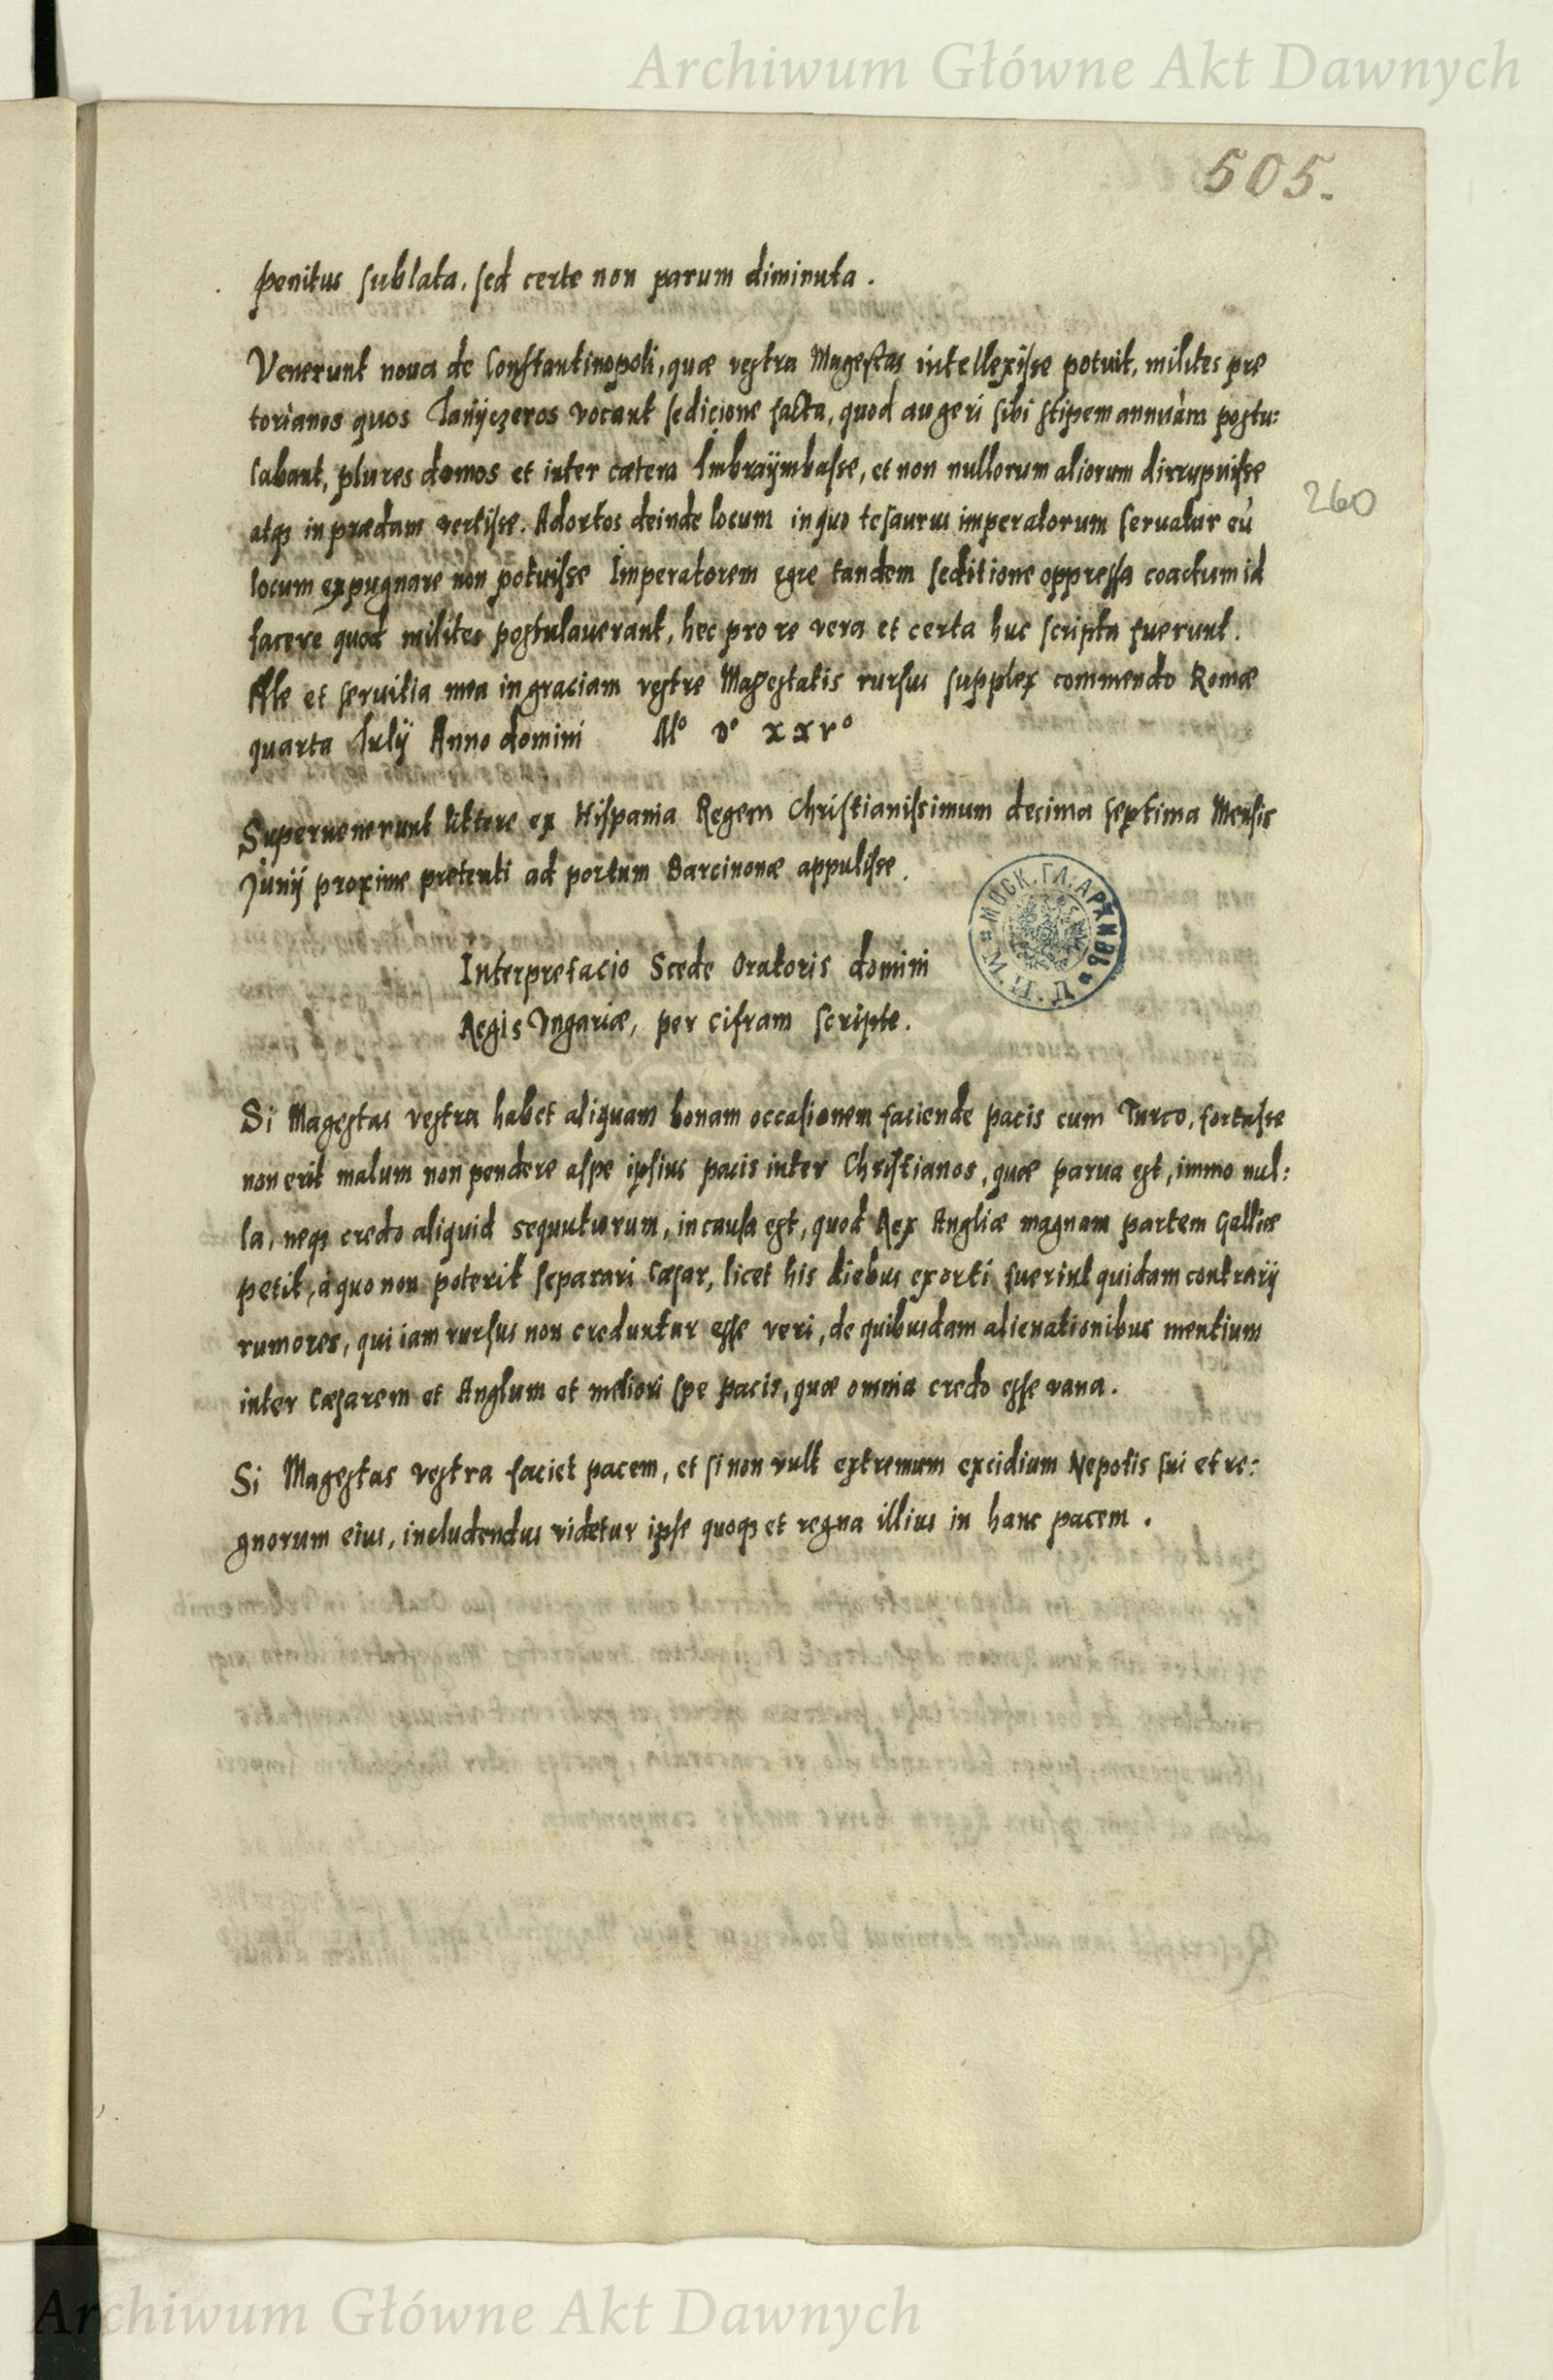 Archiwum Główne Akt Dawnych
505.
penitus sublata, sed certe non parum diminuta.
Venerunt noua de Constantinopoli, quæ vestra Magestas intellexisse potuit, milites pre
torianos quos Janÿczeros vocant sedicione facta, quod augeri sibi stipem annuam postu:
labant, plures domos et inter cætera Imbraÿmbasse, et non nullorum aliorum dirrupuisse
atqʒ in prædam vertisse. Adortos deinde locum in quo tesaurus imperatorum seruatur eū
locum expugnare non potuisse Imperatorem egre tandem seditione oppressa coactum id
facere quod milites postulauerant, hec pro re vera et certa huc scripta fuerunt.
Me et seruitia mea in graciam vestre Magestatis rursus supplex commendo Romæ
quarta Julÿ Anno domini Mº vº xxvº
260
Superuenerunt littere ex Hispania Regem Christianissimum decima septima Mensis
Junÿ proxime preteriti ad portum Barcinonæ appulisse.
МОСК. ГЛ. АРХИВЪ М.И.Д.
Interpretacio Scede Oratoris domini
Regis Vngariæ, per cifram scripte.
Si Magestas vestra habet aliquam bonam occasionem faciende pacis cum Turco, fortasse
non erit malum non pendere a spe ipsius pacis inter Christianos, quæ parua est, immo nul:
la, neqʒ credo aliquid sequuturum, in causa est, quod Rex Angliæ magnam partem Galliæ
petit, a quo non poterit separari Cæsar, licet his diebus exorti fuerint quidam contrarÿ
rumores, qui iam rursus non creduntur esse veri, de quibusdam alienationibus mentium
inter Cæsarem et Anglum et meliori spe pacis, quæ omnia credo esse vana.
Si Magestas vestra faciet pacem, et si non vult extremum excidium Nepotis sui et re:
gnorum eius, includendus videtur ipse quoqʒ et regna illius in hanc pacem.
Archiwum Główne Akt Dawnych